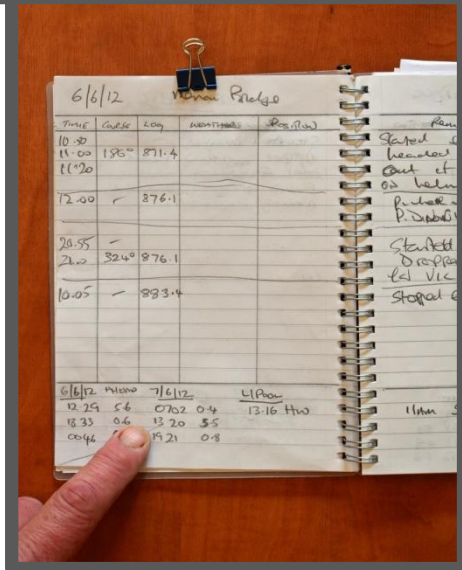 6/6/12 Menai Bridge
TIME COURSE LOG WEATHER POSITION
10.50
11.00 186° 871.4
11.20
12.00 - 876.1
20.55 -
324° 876.1
10.05 - 883.4
6/6/12 7/6/12 L/Pool
12.29 5.6 0702 0.4 13.16 HW
18.33 0.6 13 20 5.5
0046 19 21 0.8
Started
headed
out of
on helm
Started
Stopped
11am